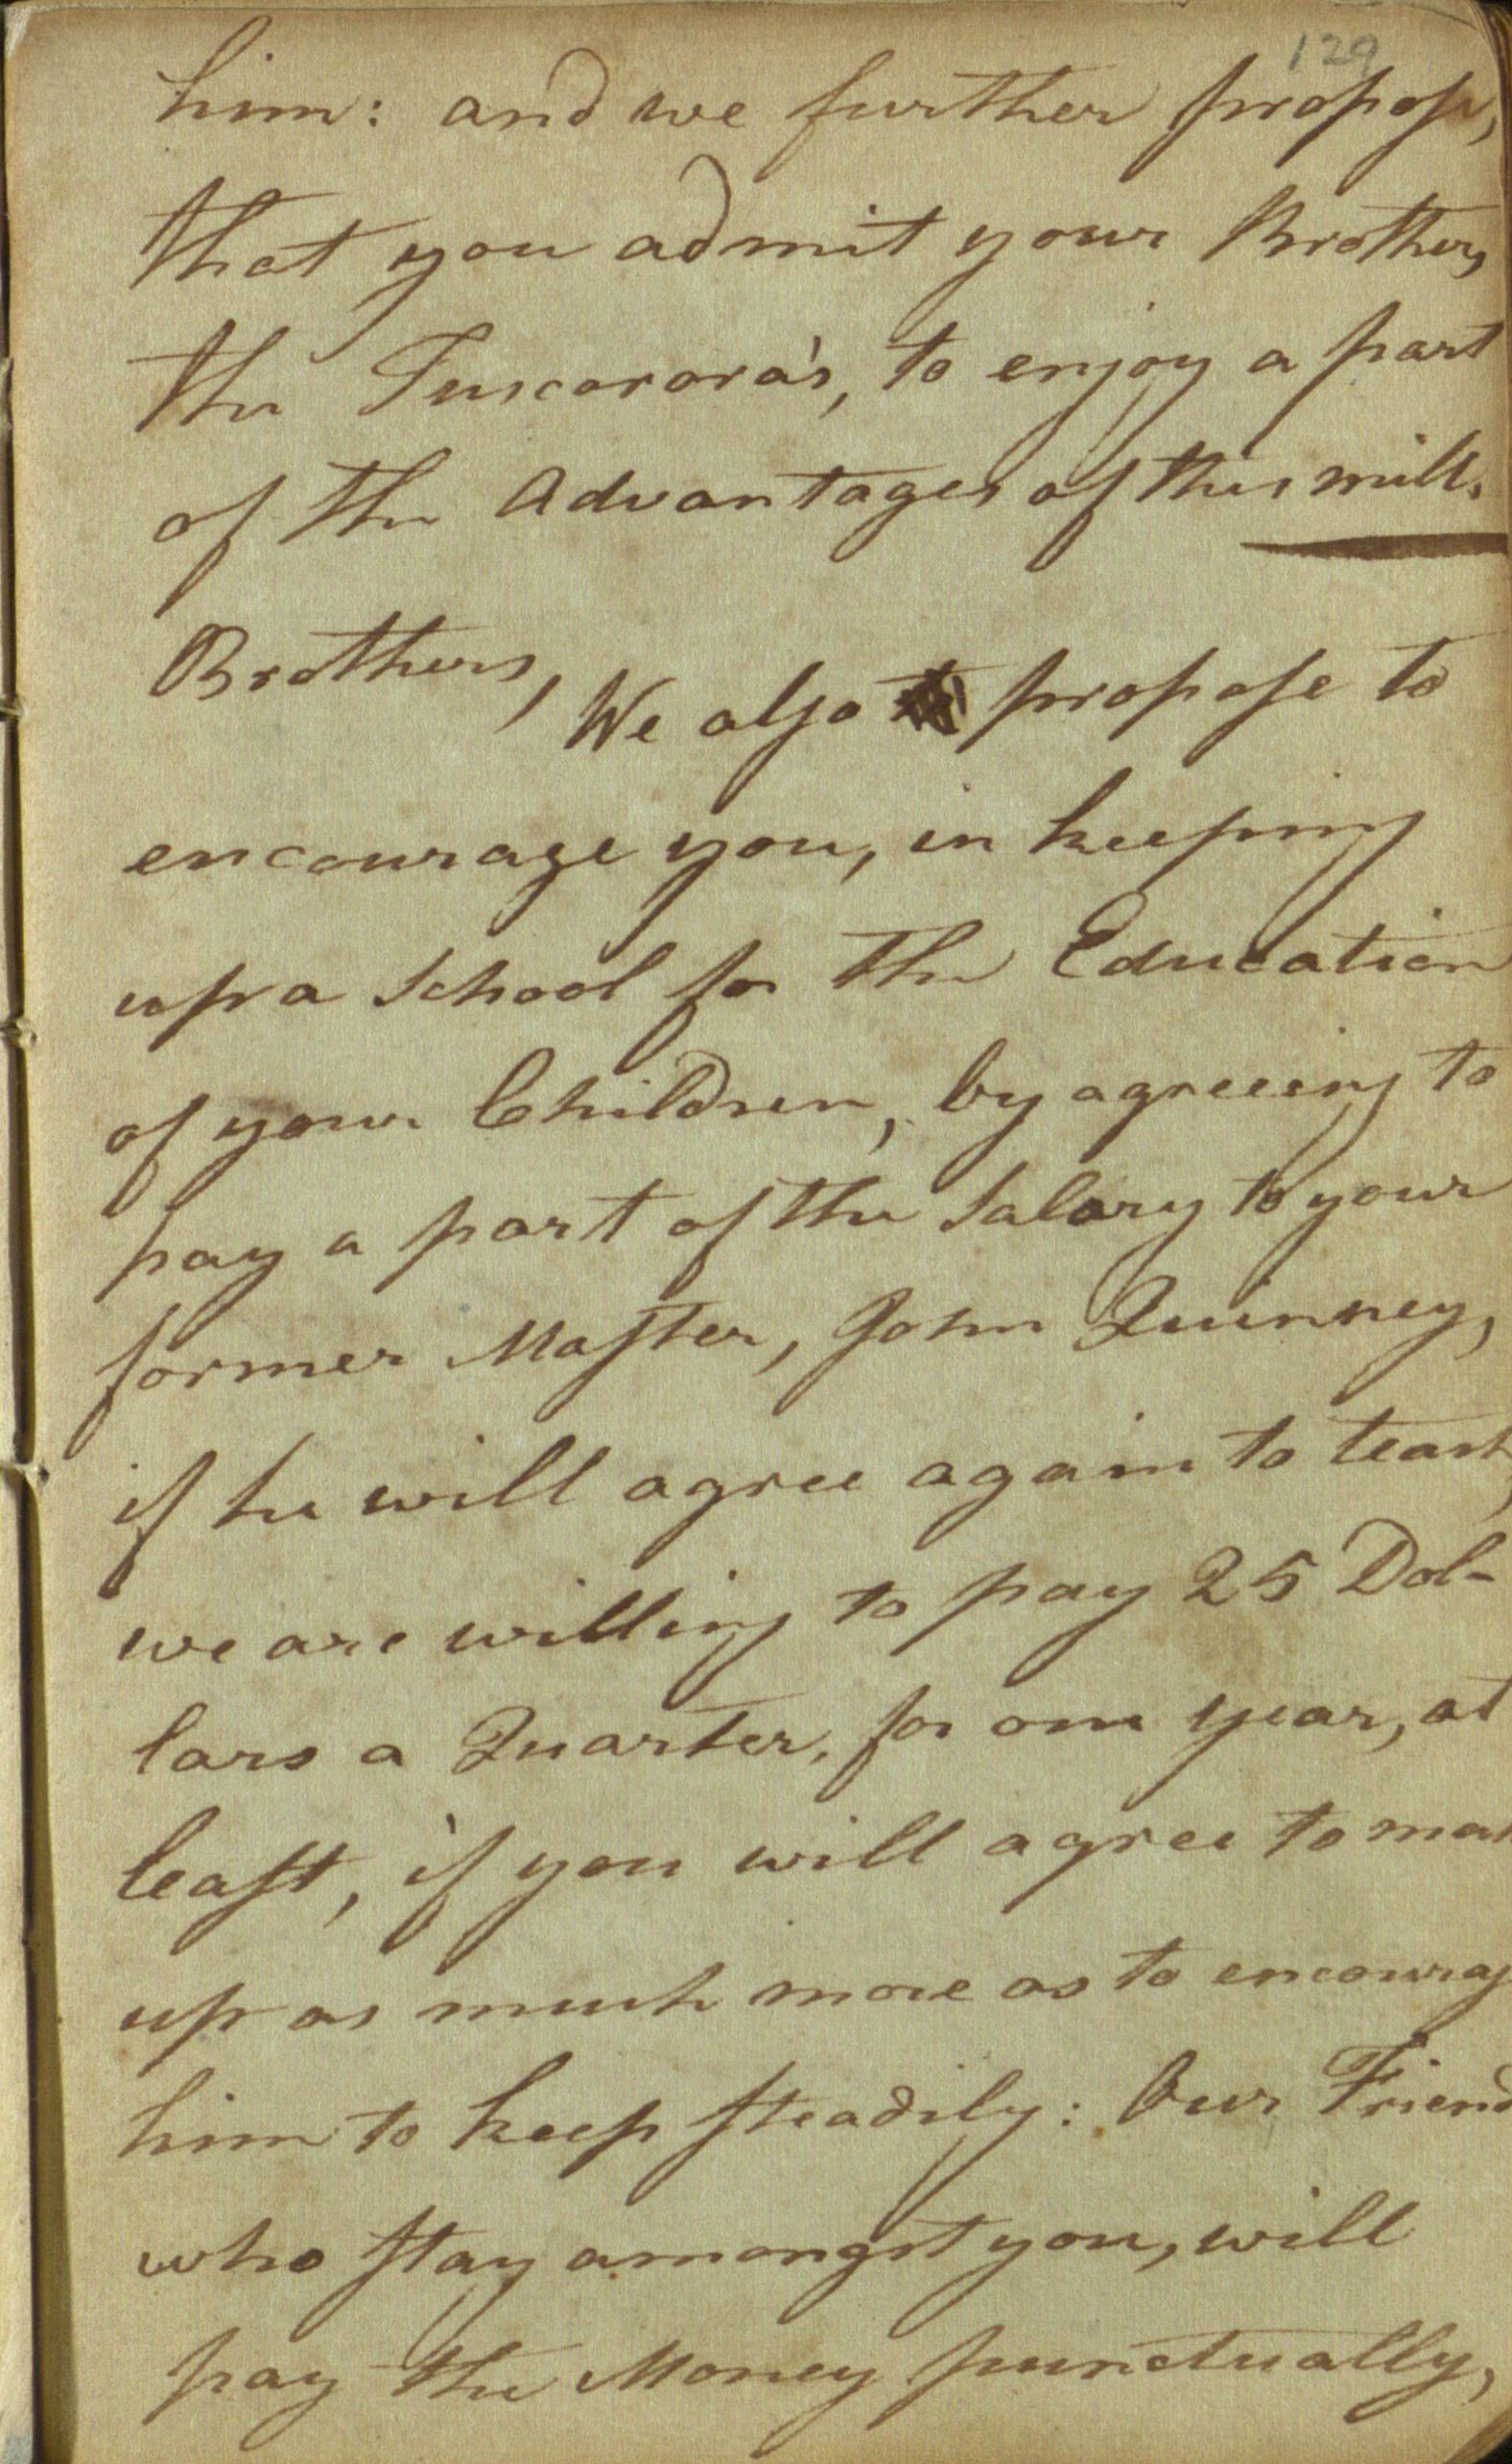 129
him: and we further propose,
that you admit your Brothers
the Tuscarora's, to enjoy a part
of the Advantages of this mill.
Brothers,
We also propose to
encourage you, in keeping
up a School for the Education
of your Children, by agreeing to
pay a part of the Salary to your
former Master, John Quinney,
if he will agree again to teach,
we are willing to pay 25 Dol-
lars a Quarter, for one year, at
least, if you will agree to mak
up as much more as to encourag
him to keep steadily: Our Friend
who stay amongst you, will
pay the Money punctually,